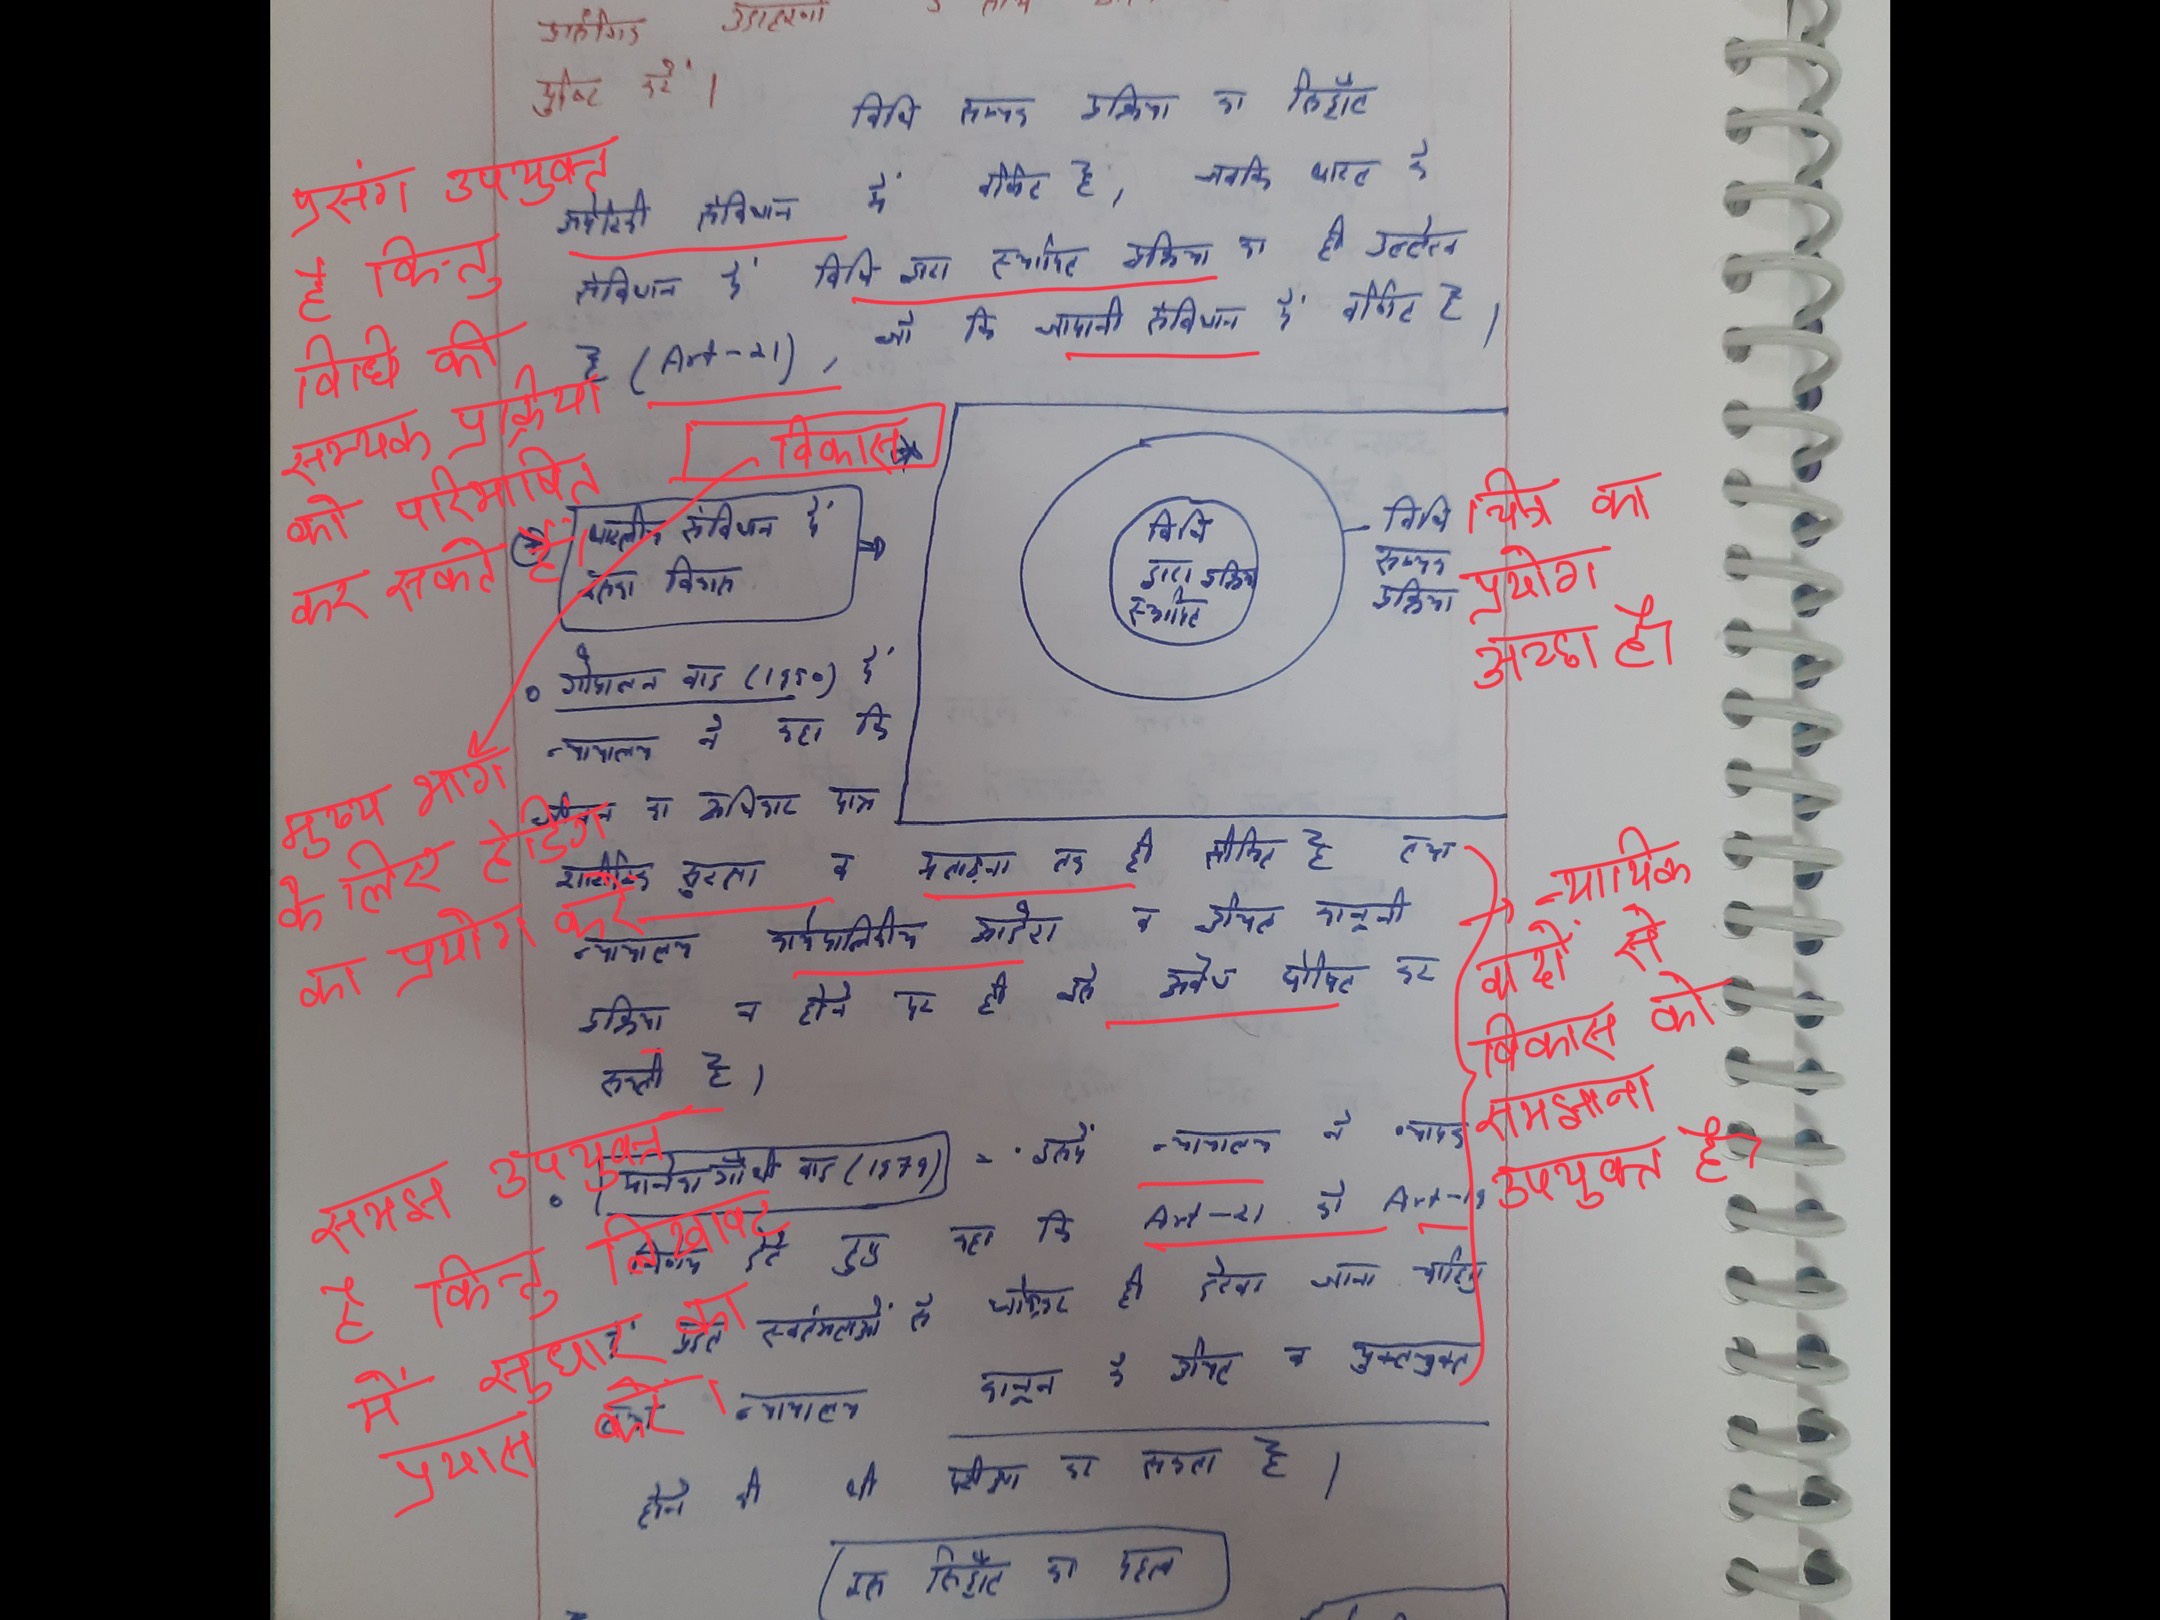 प्रासंगिक उदाहरणों के साथ
पुष्टि करें।
विधि सम्यक प्रक्रिया का सिद्धांत
अमेरिकी संविधान में वर्णित है, जबकि भारत के
संविधान में विधि द्वारा स्थापित प्रक्रिया का ही उल्लेख
है (Art-21), जो कि जापानी संविधान में वर्णित है।
प्रसंग उपयुक्त
है किन्तु
विधि की
सम्यक प्रक्रिया
को परिभाषित
कर सकते हैं।
विकास
भारतीय संविधान में
इसका विकास
विधि
द्वारा प्रक्रिया
स्थापित
विधि
सम्यक
प्रक्रिया
चित्र का
प्रयोग
अच्छा है।
गोपालन वाद (1950) में
न्यायालय ने कहा कि
जीवन का अधिकार मात्र
शारीरिक सुरक्षा व प्रताड़ना तक ही सीमित है तथा
न्यायालय कार्यपालिकीय आदेश व उचित कानूनी
प्रक्रिया न होने पर ही इसे अवैध घोषित कर
सकती है।
मुख्य भाग
के लिए हेडिंग
का प्रयोग करें
न्यायिक
वादों से
विकास को
समझाना
उपयुक्त है।
मेनका गाँधी वाद (1978) - इसमें न्यायालय ने व्यापक
निर्णय देते हुए कहा कि Art-21 को Art-19
में प्रदत्त स्वतंत्रताओं से जोड़कर ही देखा जाना चाहिए
तथा न्यायालय कानून के उचित व युक्तियुक्त
होने की भी परीक्षा कर सकता है।
समझ उपयुक्त
है किन्तु लिखावट
में सुधार का
प्रयास करें।
इस सिद्धांत का महत्व